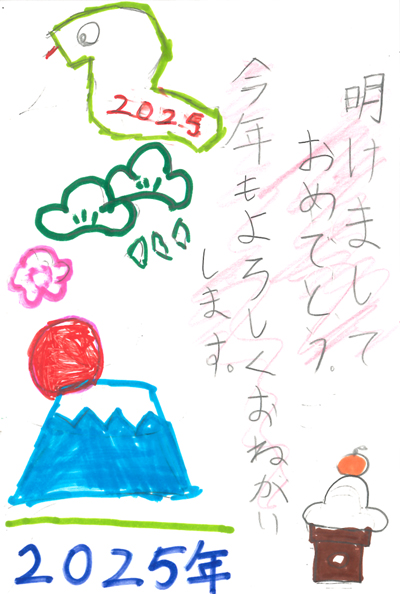 明けまして
おめでとう。
今年もよろしくおねがい
します。
2025
2025年